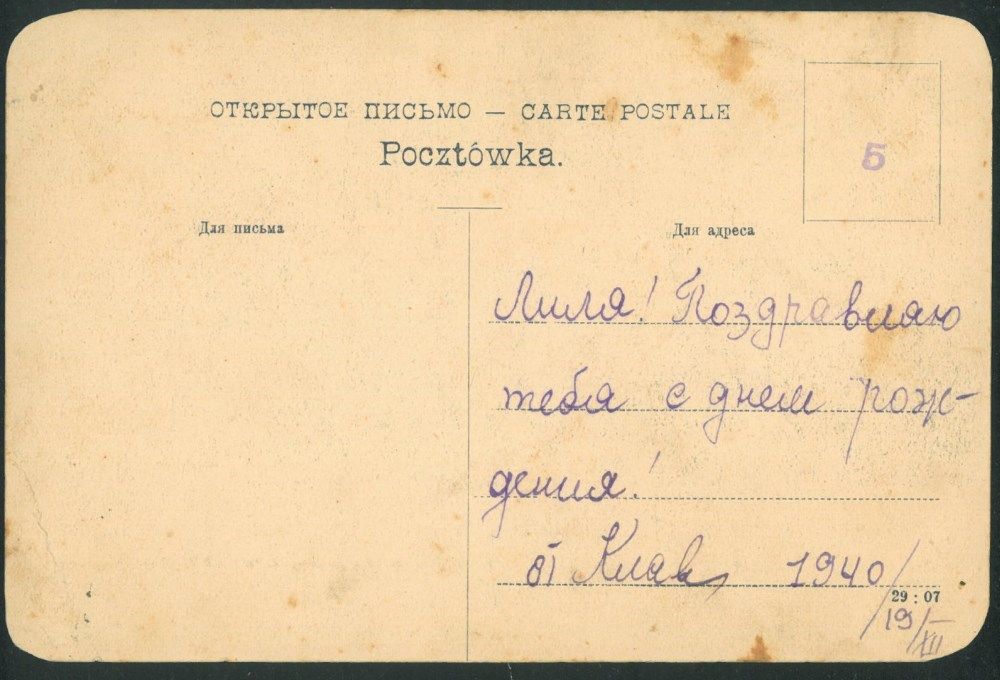 ОТКРЫТОЕ ПИСЬМО — CARTE POSTALE
Pocztówka.
5
Для письма
Для адреса
Лиля! Поздравляю
тебя с днем рож-
дения!
от 1940/
29 : 07
/19/XII